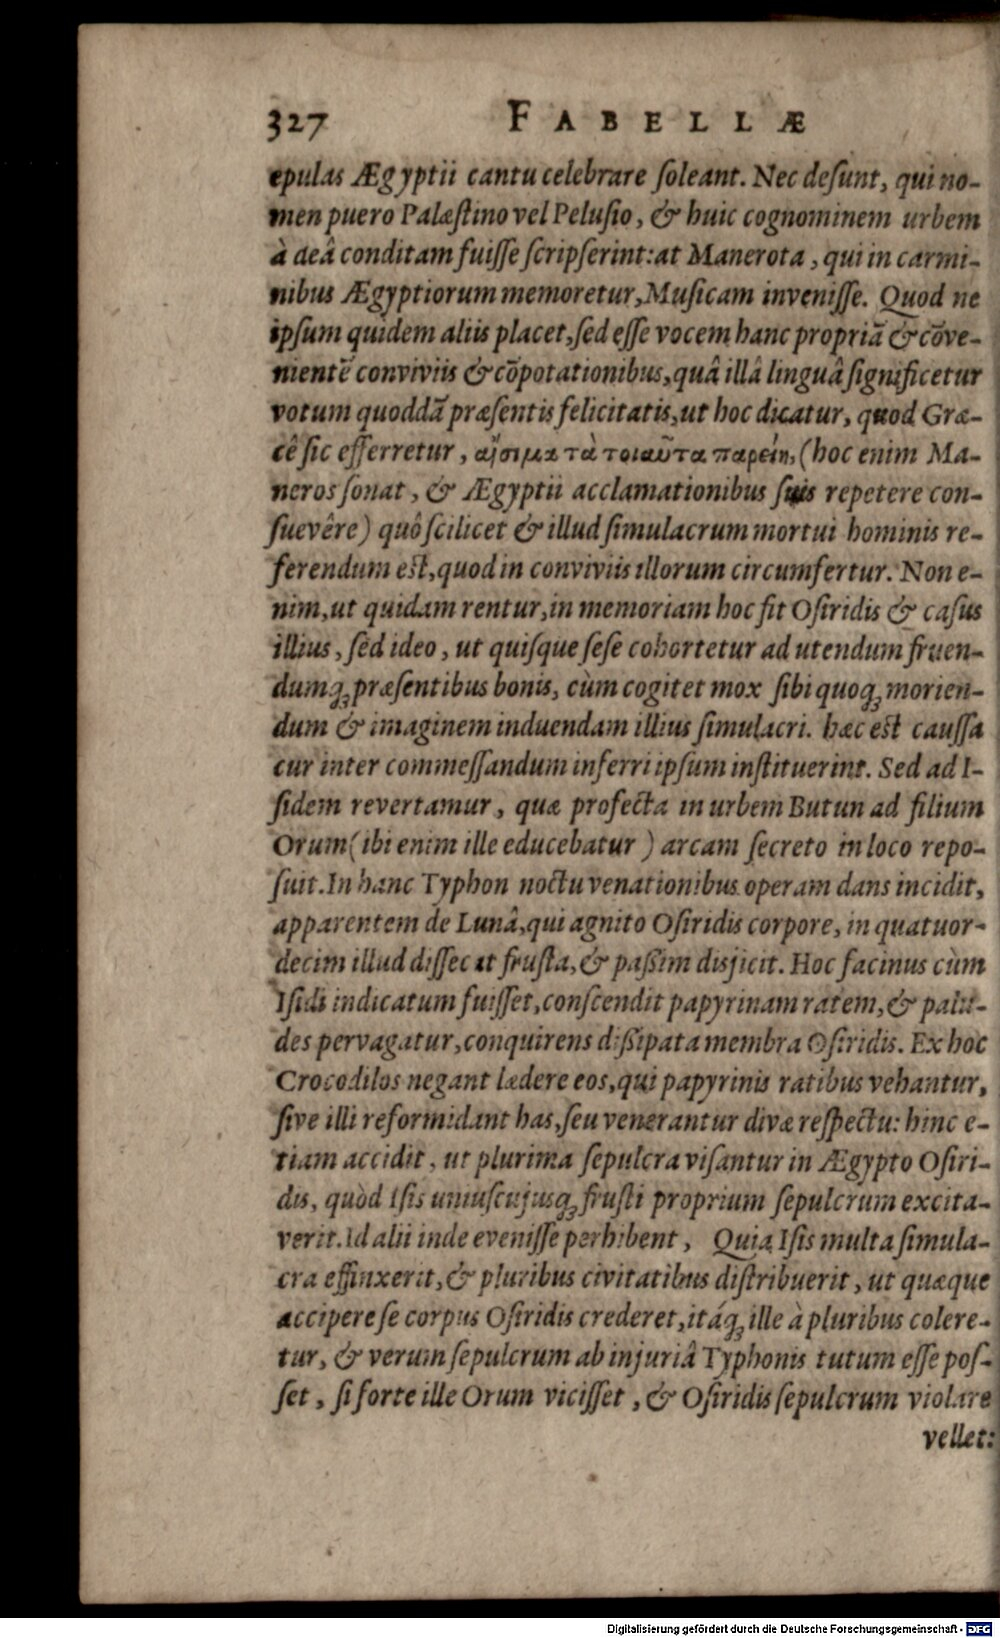 327 FABELLÆ
epulas Ægyptii cantu celebrare ſoleant. Nec deſunt, qui no-
men puero Palæſtino vel Peluſio, & huic cognominem urbem
à deâ conditam fuiſſe ſcripſerint: at Manerota, qui in carmi-
nibus Ægyptiorum memoretur, Muſicam inveniſſe. Quod ne
ipſum quidem aliis placet, ſed eſſe vocem hanc propriā & cōve-
nientē conviviis & cōpotationibus, quâ illâ linguâ ſignificetur
votum quoddā præſentis felicitatis, ut hoc dicatur, quod Græ-
cê ſic efferretur, αἴσιμα τὰ τοιαῦτα παρείη, (hoc enim Ma-
neros ſonat, & Ægyptii acclamationibus ſuis repetere con-
ſuevêre) quô ſcilicet & illud ſimulacrum mortui hominis re-
ferendum eſt, quod in conviviis illorum circumfertur. Non e-
nim, ut quidam rentur, in memoriam hoc fit Oſiridis & caſus
illius, ſed ideo, ut quiſque ſeſe cohortetur ad utendum fruen-
dumq; præſentibus bonis, cùm cogitet mox ſibi quoq; morien-
dum & imaginem induendam illius ſimulacri. hæc eſt cauſſa
cur inter commeſſandum inferri ipſum inſtituerint. Sed ad I-
ſidem revertamur, quæ profecta in urbem Butun ad filium
Orum (ibi enim ille educebatur) arcam ſecreto in loco repo-
ſuit. In hanc Typhon noctu venationibus operam dans incidit,
apparentem de Lunâ, qui agnito Oſiridis corpore, in quatuor-
decim illud diſſecat fruſta, & paßim disjicit. Hoc facinus cùm
Iſidi indicatum fuiſſet, conſcendit papyrinam ratem, & palu-
des pervagatur, conquirens dißipata membra Oſiridis. Ex hoc
Crocodilos negant lædere eos, qui papyrinis ratibus vehantur,
ſive illi reformidant has, ſeu venerantur divæ reſpectu: hinc e-
tiam accidit, ut plurima ſepulcra viſantur in Ægypto Oſiri-
dis, quòd Iſis uniuſcujusq; fruſti proprium ſepulcrum excita-
verit. Id alii inde eveniſſe perhibent, Quia Iſis multa ſimula-
cra effinxerit, & pluribus civitatibus diſtribuerit, ut quæque
accipere ſe corpus Oſiridis crederet, itáq; ille à pluribus colere-
tur, & verum ſepulcrum ab injuriâ Typhonis tutum eſſe poſ-
ſet, ſi forte ille Orum viciſſet, & Oſiridis ſepulcrum violare
vellet:
Digitalisierung gefördert durch die Deutsche Forschungsgemeinschaft - DFG